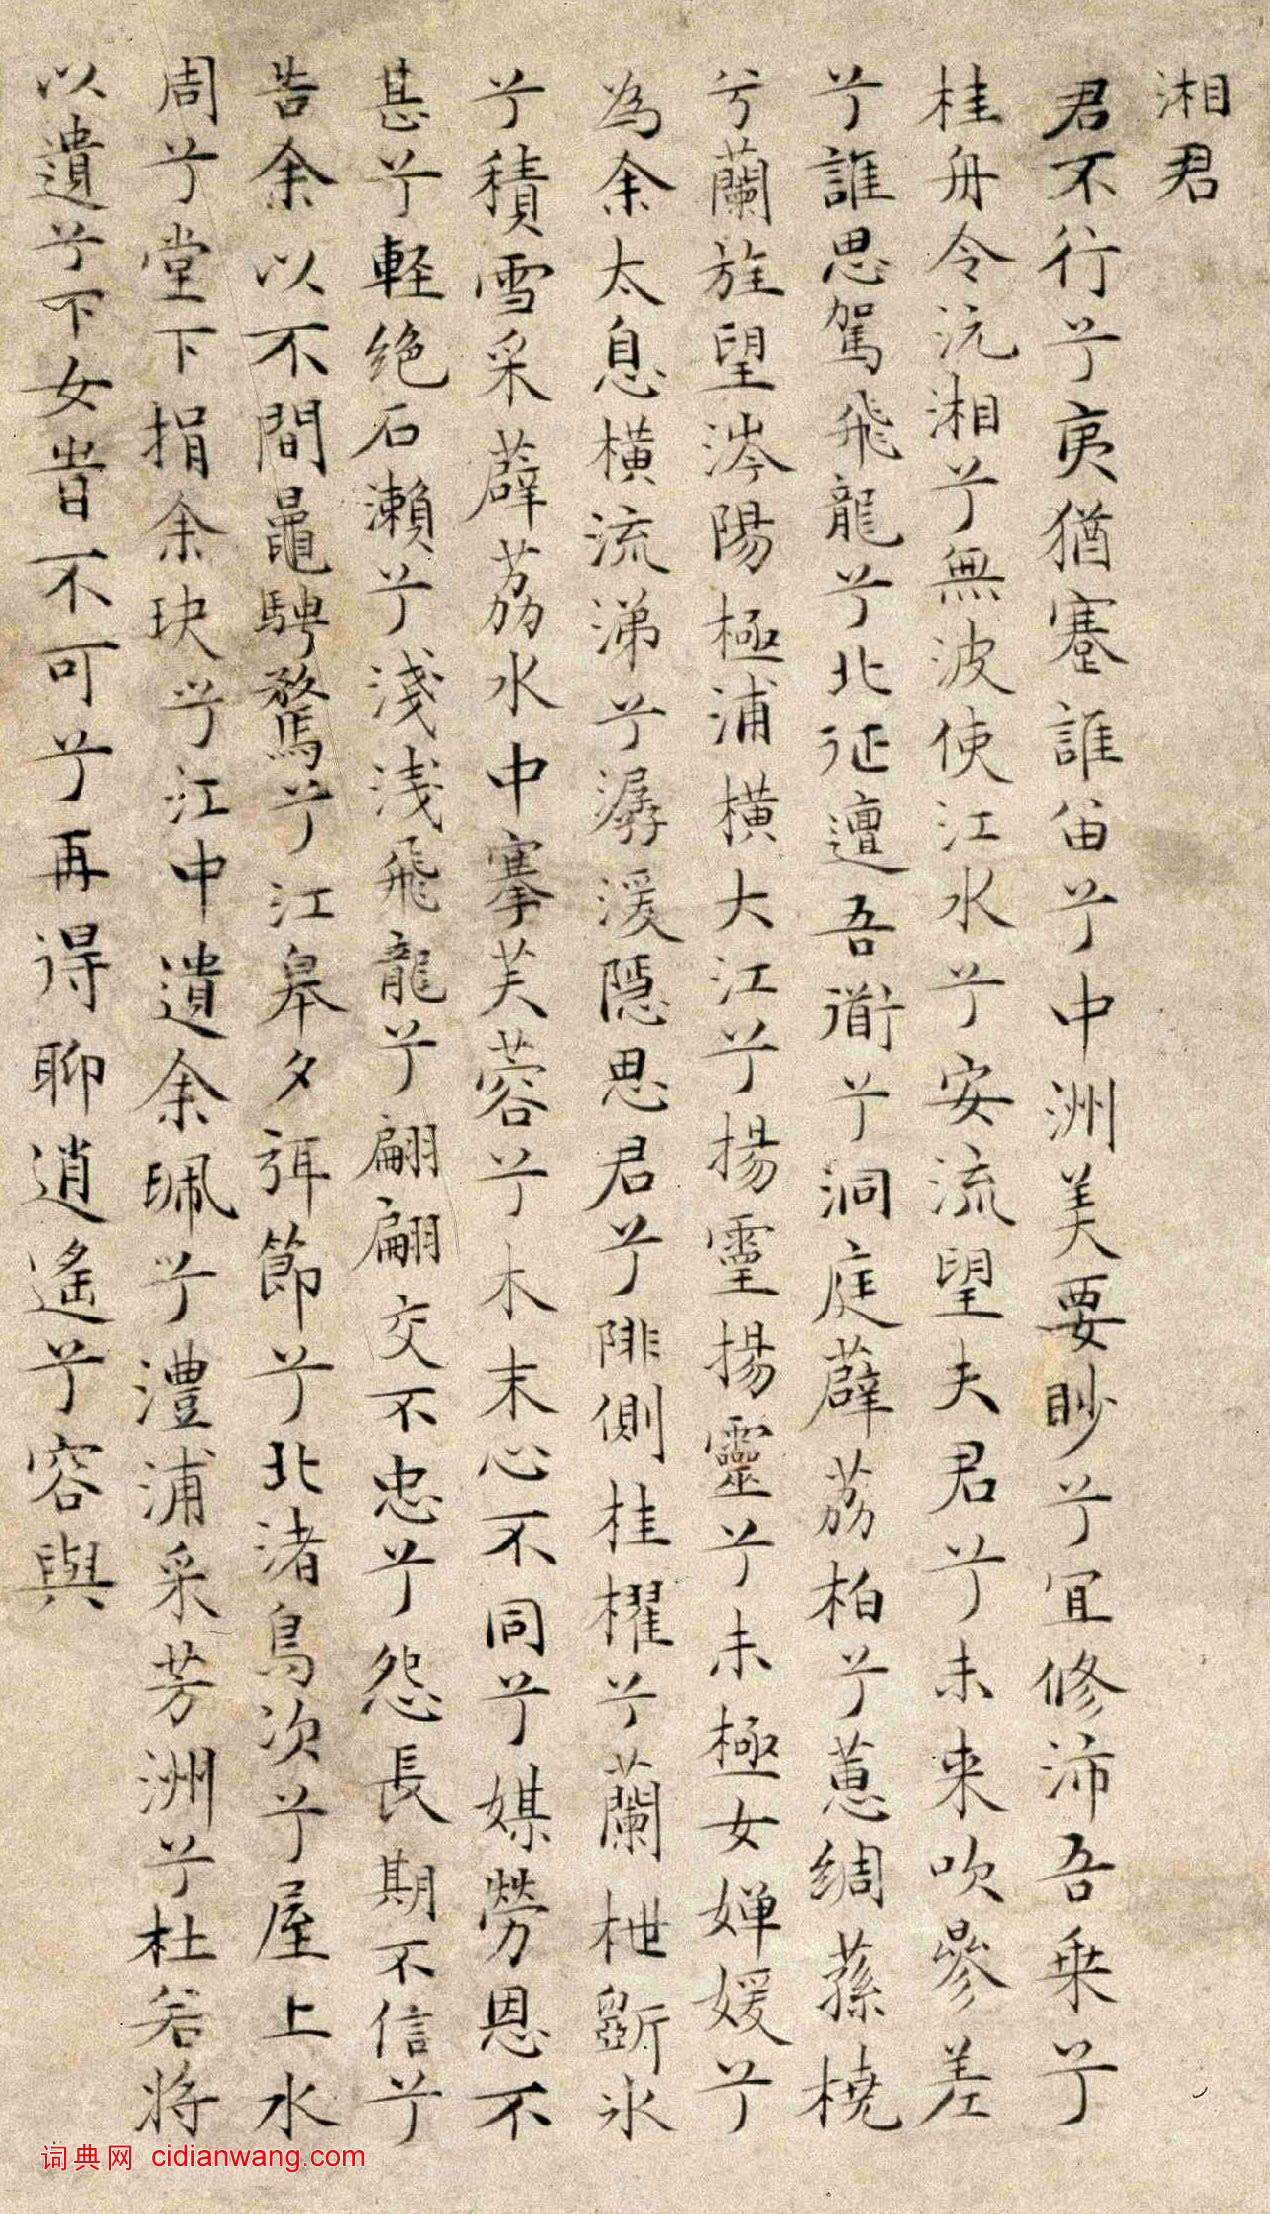 湘君
君不行兮夷猶蹇誰留兮中洲美要眇兮宜修沛吾乘兮
桂舟令沅湘兮無波使江水兮安流望夫君兮未来吹參差
兮誰思駕飛龍兮北征邅吾道兮洞庭薜荔柏兮蕙綢蓀橈
兮蘭旌望涔陽極浦橫大江兮揚靈揚靈兮未極女嬋媛兮
為余太息橫流涕兮潺湲隱思君兮陫側桂櫂兮蘭枻斵冰
兮積雪采薜荔水中搴芙蓉兮木末心不同兮媒勞恩不
甚兮輕绝石瀨兮淺淺飛龍兮翩翩交不忠兮怨長期不信兮
告余以不閒鼂騁騖兮江皋夕弭節兮北渚鳥次兮屋上水
周兮堂下捐余玦兮江中遺余珮兮澧浦采芳洲兮杜若將
以遺兮下女旹不可兮再得聊逍遙兮容與
词典网 cidianwang.com